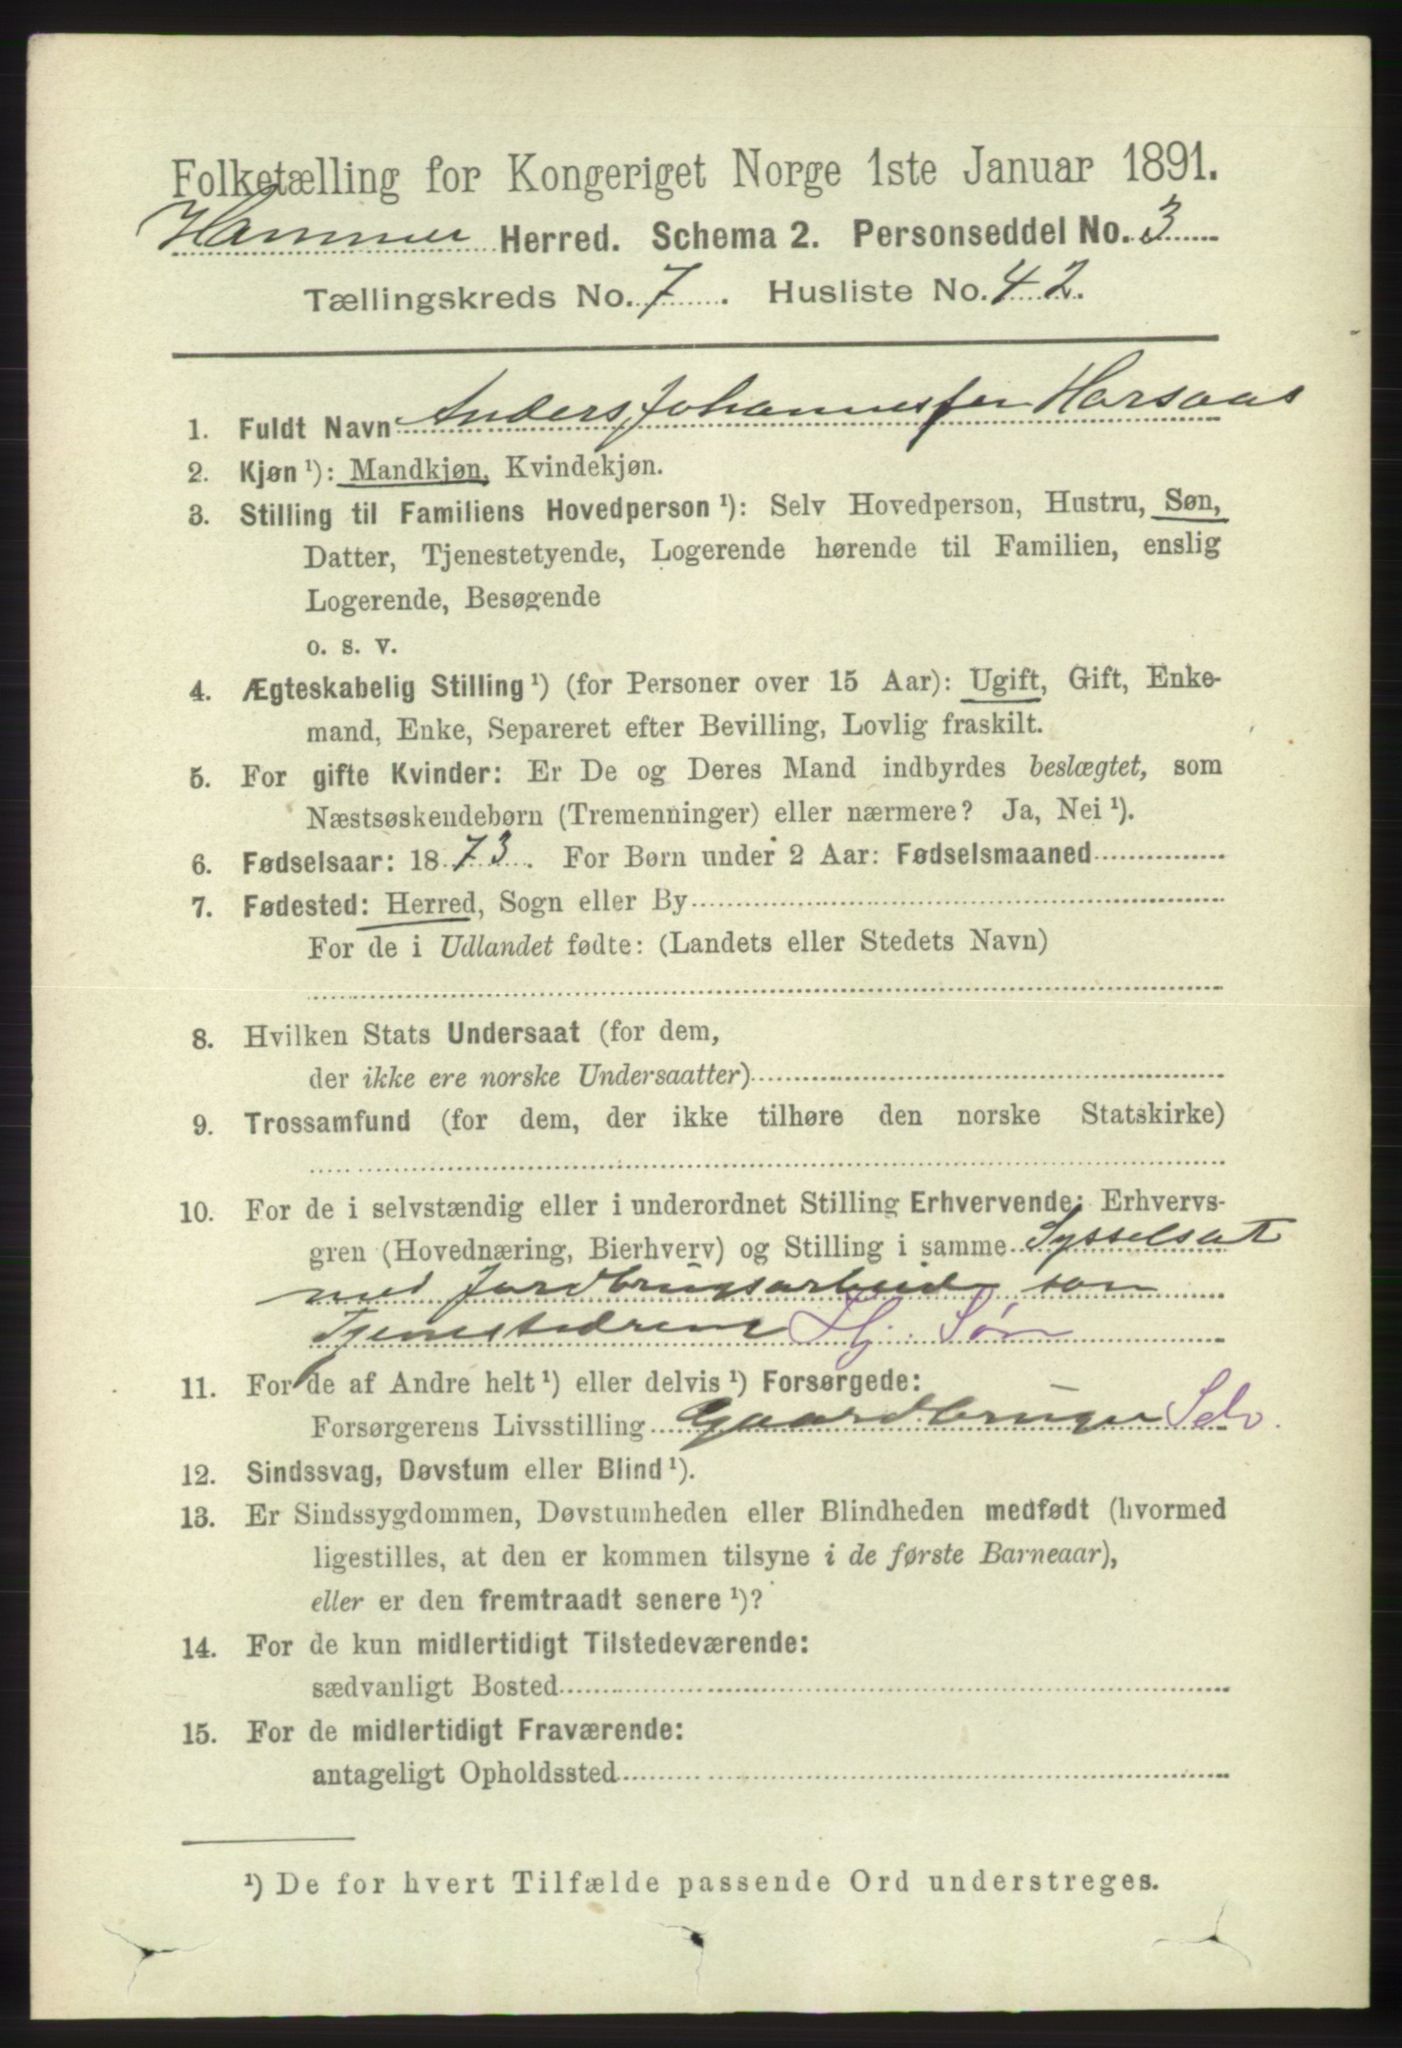 Folketælling for Kongeriget Norge 1ste Januar 1891.
Hammer Herred. Schema 2. Personseddel No. 3
Tællingskreds No. 7. Husliste No. 42.
1. Fuldt Navn Anders Johannessen Horsaas
2. Kjøn ¹): Mandkjøn, Kvindekjøn.
3. Stilling til Familiens Hovedperson ¹): Selv Hovedperson, Hustru, Søn,
Datter, Tjenestetyende, Logerende hørende til Familien, enslig
Logerende, Besøgende
o. s. v.
4. Ægteskabelig Stilling ¹) (for Personer over 15 Aar): Ugift, Gift, Enke-
mand, Enke, Separeret efter Bevilling, Lovlig fraskilt.
5. For gifte Kvinder: Er De og Deres Mand indbyrdes beslægtet, som
Næstsøskendebørn (Tremenninger) eller nærmere? Ja, Nei ¹).
6. Fødselsaar: 1873. For Børn under 2 Aar: Fødselsmaaned
7. Fødested: Herred, Sogn eller By
For de i Udlandet fødte: (Landets eller Stedets Navn)
8. Hvilken Stats Undersaat (for dem,
der ikke ere norske Undersaatter)
9. Trossamfund (for dem, der ikke tilhøre den norske Statskirke)
10. For de i selvstændig eller i underordnet Stilling Erhvervende: Erhvervs-
gren (Hovednæring, Bierhverv) og Stilling i samme Sysselsat
med Jordbrugsarbeide som
Tjenestedreng Hj. Søn
11. For de af Andre helt ¹) eller delvis ¹) Forsørgede:
Forsørgerens Livsstilling Gaardbruger Selv.
12. Sindssvag, Døvstum eller Blind ¹).
13. Er Sindssygdommen, Døvstumheden eller Blindheden medfødt (hvormed
ligestilles, at den er kommen tilsyne i de første Barneaar),
eller er den fremtraadt senere ¹)?
14. For de kun midlertidigt Tilstedeværende:
sædvanligt Bosted
15. For de midlertidigt Fraværende:
antageligt Opholdssted
¹) De for hvert Tilfælde passende Ord understreges.